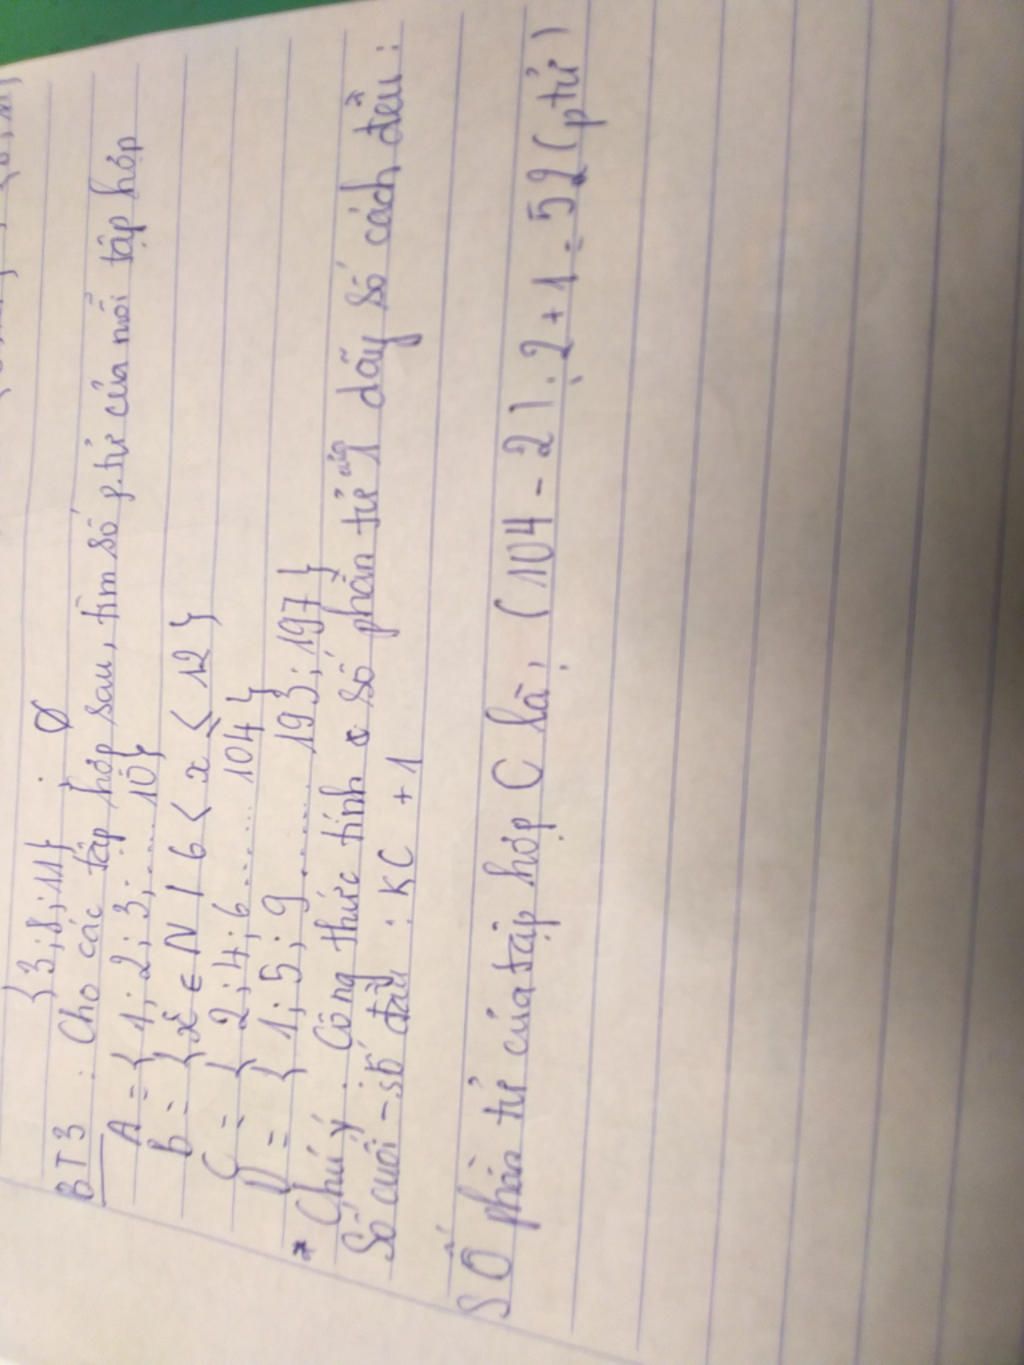 {3;8;11} . ∅
BT3 : Cho các tập hợp sau, tìm số p.tử của mỗi tập hợp
A = {1; 2; 3; .... 10}
B = {x ∈ N / 6 < x ≤ 12}
C = {2; 4; 6 ..... 104}
D = {1; 5; 9 ....... 193; 197}
* Chú ý : Công thức tính số phần tử của 1 dãy số cách đều :
Số cuối - số đầu : KC + 1
Số phần tử của tập hợp C là : (104 - 2) : 2 + 1 = 52 (ptử)